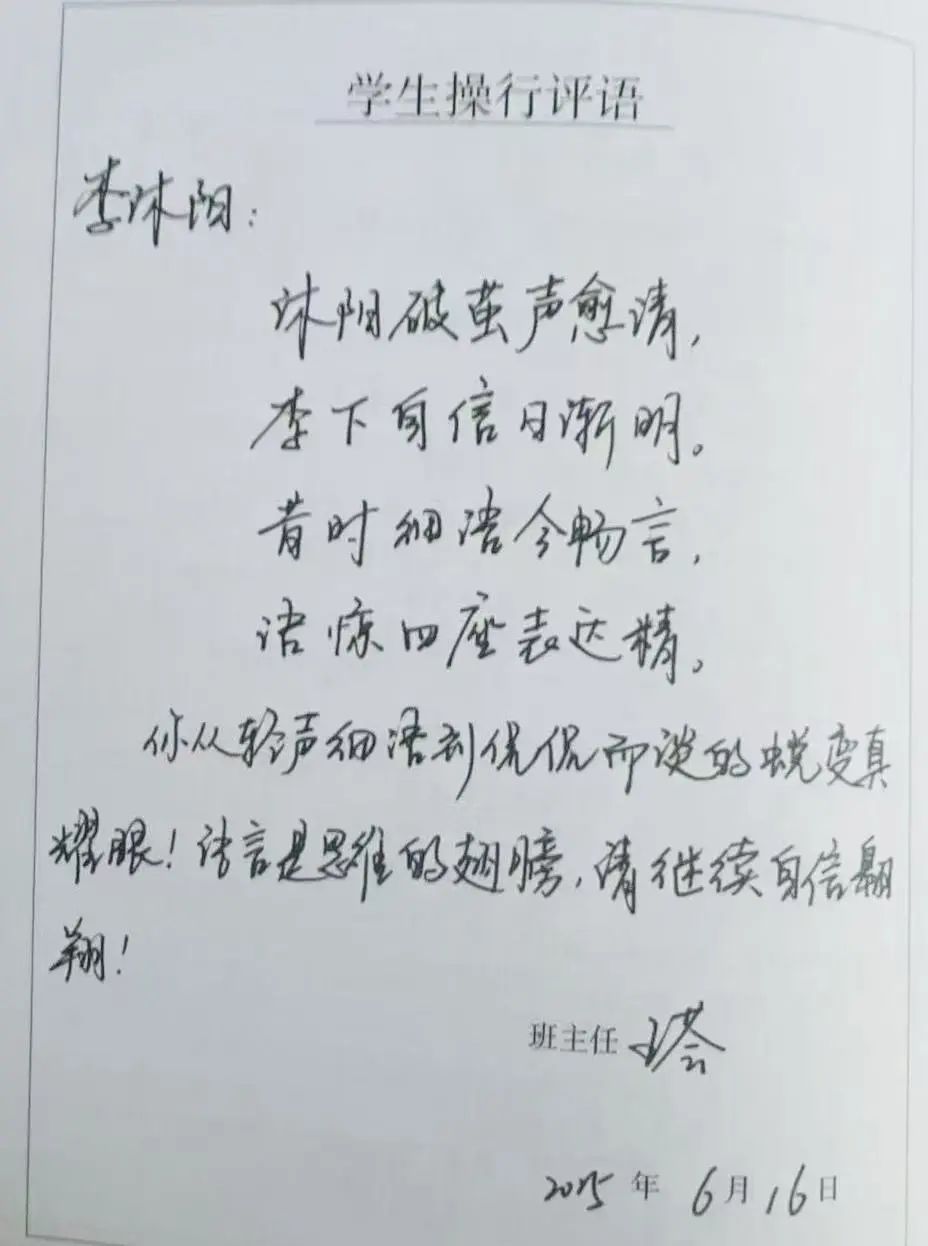 学生操行评语
李沐阳：
沐阳破茧声愈清，
李下自信日渐明。
昔时细语今畅言，
语惊四座表达精。
你从轻声细语到侃侃而谈的蜕变真
耀眼！语言是思维的翅膀，请继续自信翱
翔！
班主任 王荟
2025年 6月16日